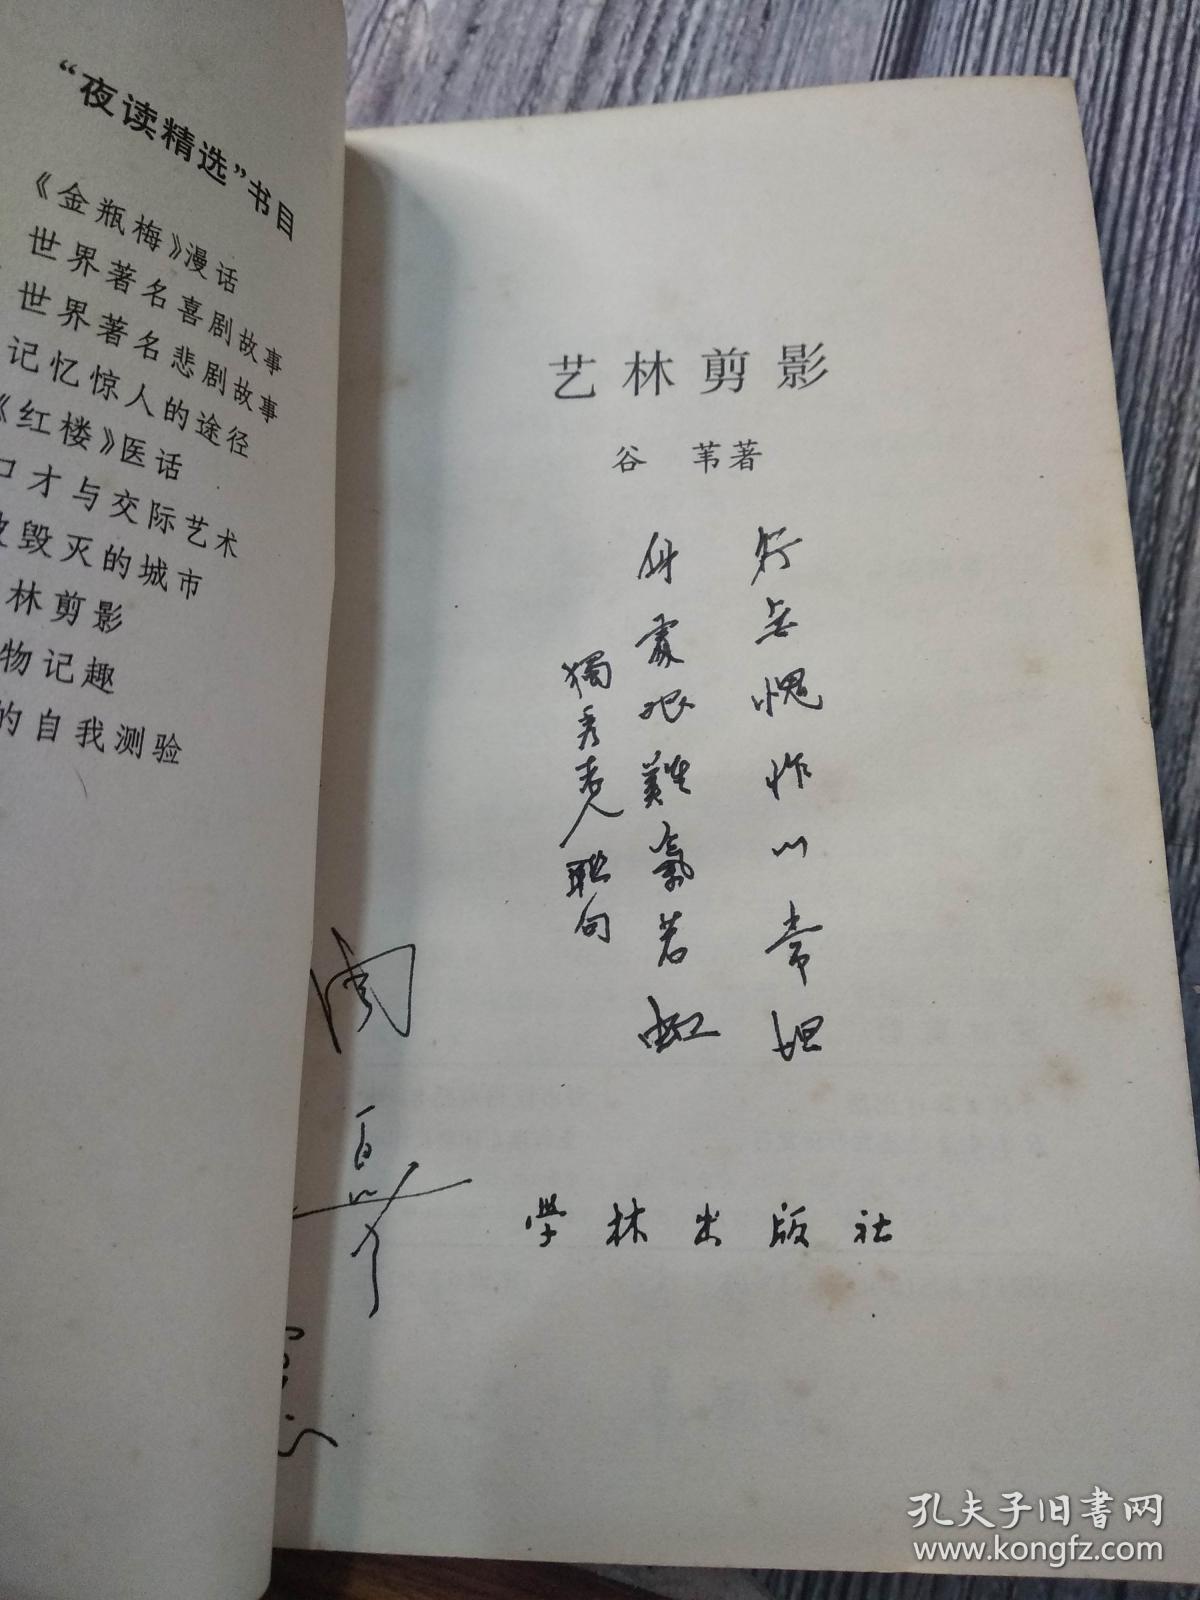 “夜读精选”书目
《金瓶梅》漫话
世界著名喜剧故事
世界著名悲剧故事
记忆惊人的途径
《红楼》医话
口才与交际艺术
被毁灭的城市
林剪影
物记趣
的自我测验
艺林剪影
谷 苇著
行无愧怍心常坦
身处艰难气若虹
獨秀老人联句
学林出版社
孔夫子旧书网
www.kongfz.com